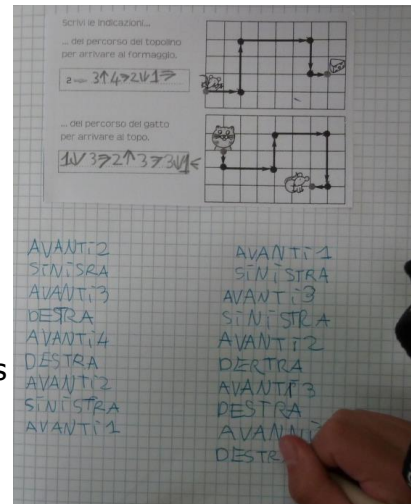 Scrivi le indicazioni...
... del percorso del topolino
per arrivare al formaggio.
2→ 3↑4→2↓1→
... del percorso del gatto
per arrivare al topo.
1↓3→2↑3→3↓1←
AVANTI2
SINISRA
AVANTI3
DESTRA
AVANTI4
DESTRA
AVANTI2
SINISTRA
AVANTI1
AVANTI1
SINISTRA
AVANTI3
SINISTRA
AVANTI2
DERTRA
AVANTI3
DESTRA
AVANNI
DESTR
s